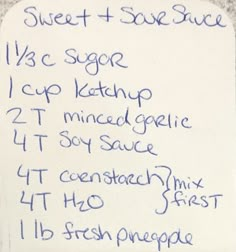 Sweet + Sour Sauce
1 1/3 c Sugar
1 cup Ketchup
2 T minced garlic
4 T Soy Sauce
4T cornstarch } mix
4T H2O } first
1 lb fresh pineapple